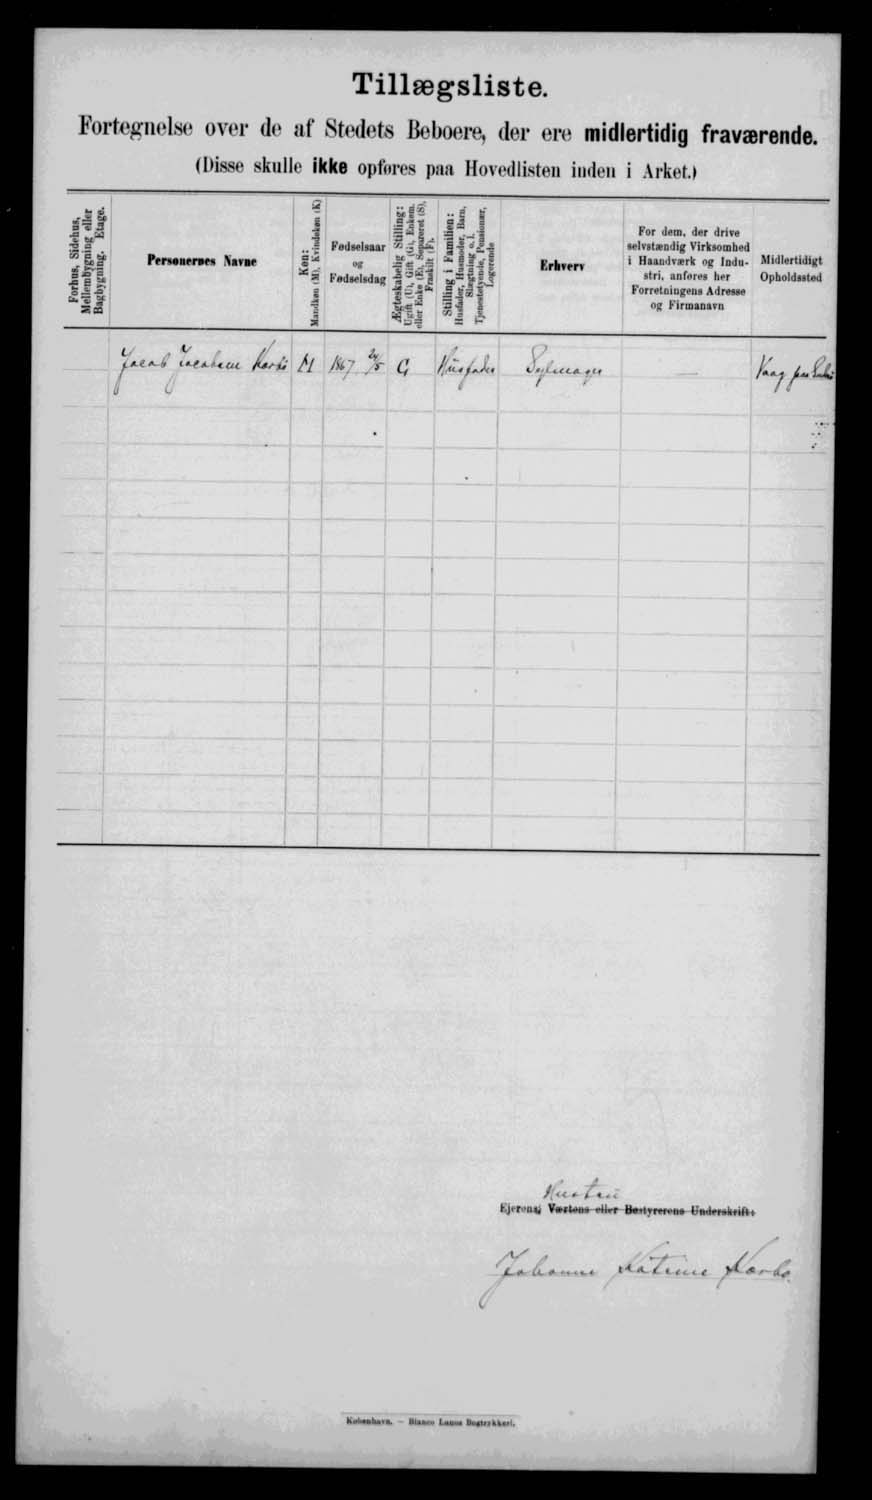 Tillægsliste.
Fortegnelse over de af Stedets Beboere, der ere midlertidig fraværende.
(Disse skulle ikke opføres paa Hovedlisten inden i Arket.)
Forhus, Sidehus,
Mellembygning eller
Bagbygning. Etage.
Personernes Navne
Køn:
Mandkøn (M), Kvindekøn (K)
Fødselsaar
og
Fødselsdag
Ægteskabelig Stilling:
Ugift (U), Gift (G), Enkem.
eller Enke (E), Separeret (S),
Fraskilt (F).
Stilling i Familien:
Husfader, Husmoder, Barn,
Slægtning o. l.
Tjenestetyende, Pensionær,
Logerende
Erhverv
For dem, der drive
selvstændig Virksomhed
i Haandværk og Indu-
stri, anføres her
Forretningens Adresse
og Firmanavn
Midlertidigt
Opholdssted
Jacob Jacobsen Karbø M 1867 24/5 G Husfader Sejlmager — Vaag paa
Hustru
Ejerens, Værtens eller Bestyrerens Underskrift:
Johanne Katrine
København. — Bianco Lunos Bogtrykkeri.